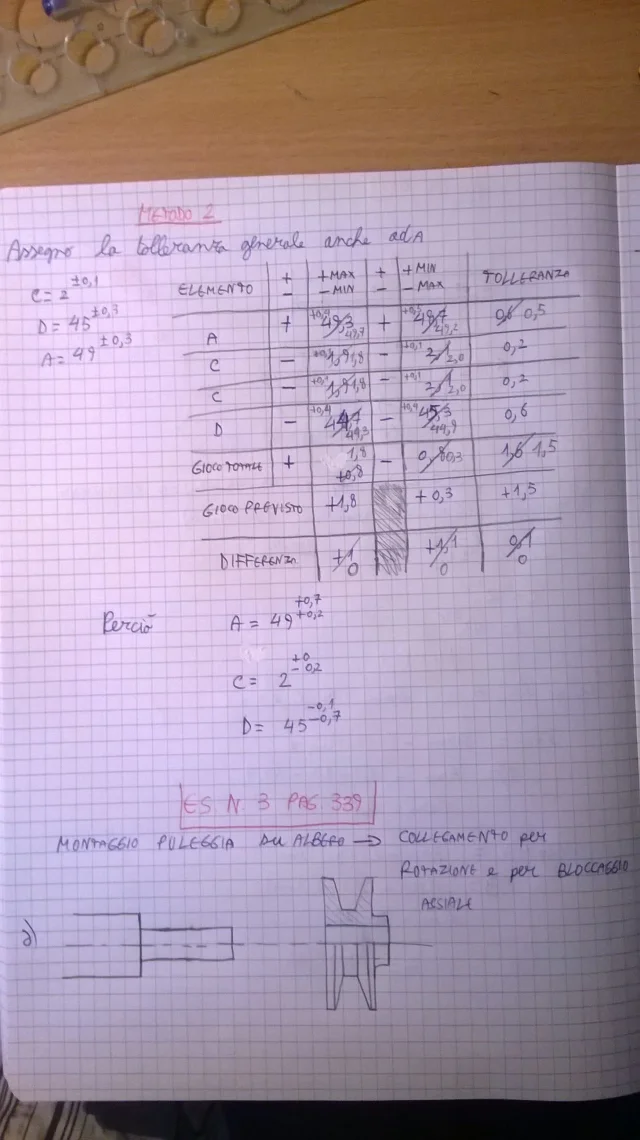 METODO 2
Assegno la tolleranza generale anche ad A
C = 2 ±0,1
D = 45 ±0,3
A = 49 ±0,3
ELEMENTO + − +MAX −MIN + − +MIN −MAX TOLLERANZA
A + 49,3 49,7 + 48,7 49,2 0,6 0,5
C − 1,9 1,8 − +0,1 2,1 2,0 0,2
C − 1,9 1,8 − +0,1 2,1 2,0 0,2
D − +0,4 44,7 44,3 − +0,4 45,3 44,9 0,6
GIOCO TOTALE + 1,8 +0,8 − 0,8 0,3 1,6 1,5
GIOCO PREVISTO +1,8 +0,3 +1,5
DIFFERENZA +1 0 +1,1 0 0,1 0
Perciò A = 49 +0,7 +0,2
C = 2 +0 −0,2
D = 45 −0,1 −0,7
ES N 3 PAG 339
MONTAGGIO PULEGGIA SU ALBERO → COLLEGAMENTO per
ROTAZIONE e per BLOCCAGGIO
ASSIALE